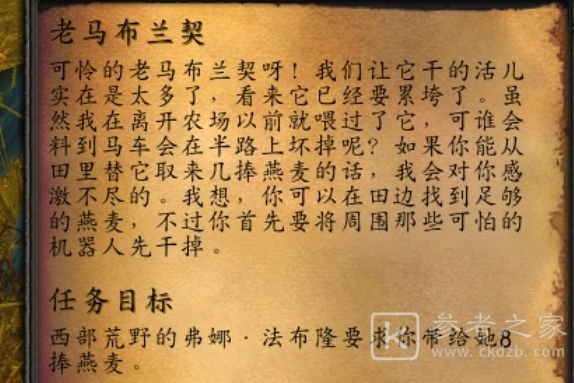 老马布兰契
可怜的老马布兰契呀！我们让它干的活儿
实在是太多了，看来它已经要累垮了。虽
然我在离开农场以前就喂过了它，可谁会
料到马车会在半路上坏掉呢？如果你能从
田里替它取来几捧燕麦的话，我会对你感
激不尽的。我想，你可以在田边找到足够
的燕麦，不过你首先要将周围那些可怕的
机器人先干掉。
任务目标
西部荒野的弗娜·法布隆要求你带给她8
捧燕麦。
参考之家
www.ckdzb.com